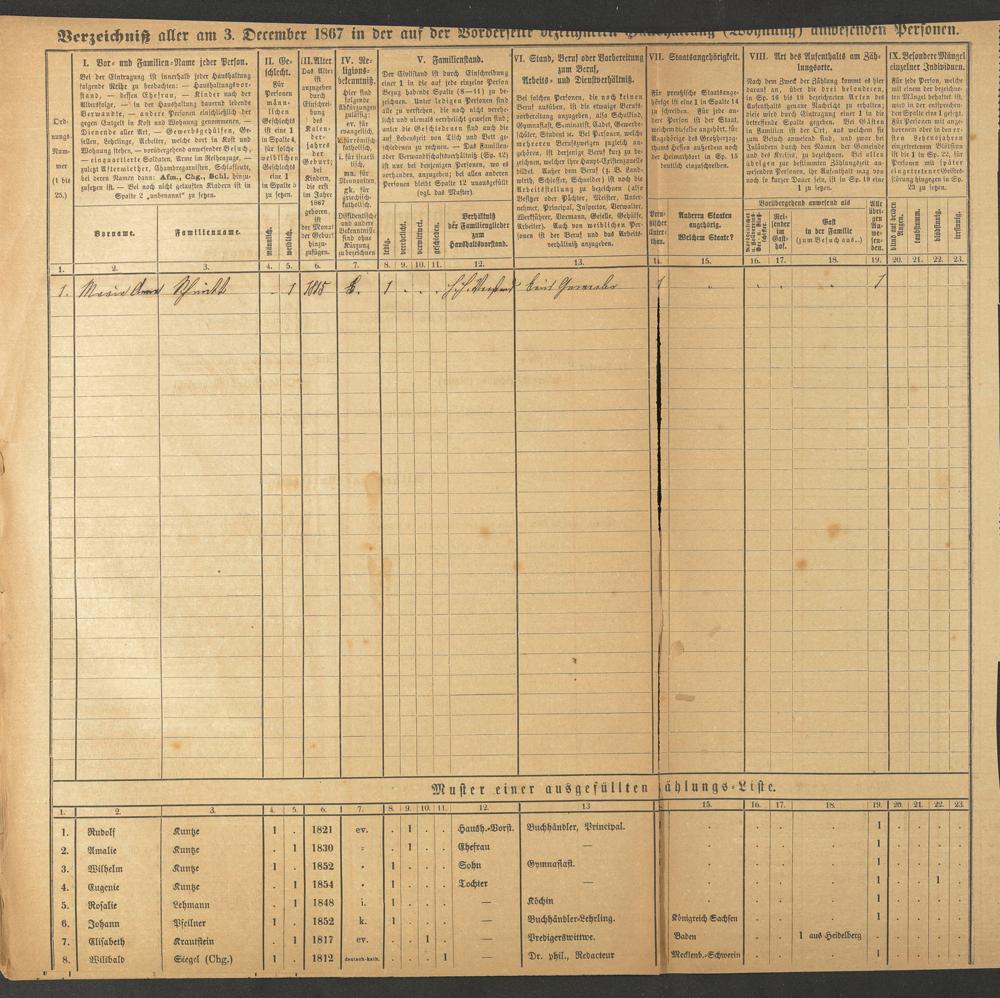 Verzeichniß aller am 3. December 1867 in der auf der Vorderseite bezeichneten Haushaltung (Wohnung) anwesenden Personen.
Ord-
nungs-
Num-
mer
(1 bis
25.)
I. Vor- und Familien-Name jeder Person.
Bei der Eintragung ist innerhalb jeder Haushaltung
folgende Reihe zu beobachten: — Haushaltungsvor-
stand, — dessen Ehefrau, — Kinder nach der
Altersfolge, — in der Haushaltung dauernd lebende
Verwandte, — andere Personen einschließlich der
gegen Entgelt in Kost und Wohnung genommenen, —
Dienende aller Art, — Gewerbsgehülfen, Ge-
sellen, Lehrlinge, Arbeiter, welche dort in Kost und
Wohnung stehen, — vorübergehend anwesender Besuch,
— einquartierte Soldaten, Arme in Reihenzuge, —
zuletzt Aftermiether, Chambregarnisten, Schlafleute,
bei deren Namen dann: Afm., Chg., Schl. hinzu-
zusetzen ist. — Bei noch nicht getauften Kindern ist in
Spalte 2 „unbenannt“ zu setzen.
Vorname.
Familienname.
II. Ge-
schlecht.
Für
Personen
männ-
lichen
Geschlechts
ist eine 1
in Spalte 4
für solche
weiblichen
Geschlechts
eine 1
in Spalte 5
zu setzen.
männlich.
weiblich.
III. Alter.
Das Alter
ist
anzugeben
durch
Einschrei-
bung
des
Kalen-
der-
jahres
der
Geburt;
bei
Kindern,
die erst
im Jahre
1867
geboren,
ist
der Monat
der Geburt
hinzu-
zufügen.
IV. Re-
ligions-
bekenntniß.
Hier sind
folgende
Abkürzungen
zulässig:
ev. für
evangelisch,
k. für römisch-
katholisch,
i. für israeli-
tisch,
mn. für
Mennoniten,
gk. für
griechisch-
katholisch.
Dissidentische
und andere
Bekenntnisse
sind ohne
Kürzung
zu bezeichnen
V. Familienstand.
Der Civilstand ist durch Einschreibung
einer 1 in die auf jede einzelne Person
Bezug habende Spalte (8—11) zu be-
zeichnen. Unter ledigen Personen sind
alle zu verstehen, die noch nicht verehe-
licht und niemals verehelicht gewesen sind;
unter die Geschiedenen sind auch die
auf Lebenszeit von Tisch und Bett ge-
schiedenen zu rechnen. — Das Familien-
oder Verwandtschaftsverhältniß (Sp. 12)
ist nur bei denjenigen Personen, wo es
vorhanden, anzugeben; bei allen anderen
Personen bleibt Spalte 12 unausgefüllt
(vgl. das Muster).
ledig.
verehelicht.
verwittwet.
geschieden.
Verhältniß
der Familienglieder
zum
Haushaltsvorstand.
VI. Stand, Beruf oder Vorbereitung
zum Beruf,
Arbeits- und Dienstverhältniß.
Bei solchen Personen, die noch keinen
Beruf ausüben, ist die etwaige Berufs-
vorbereitung anzugeben, also Schulkind,
Gymnasiast, Seminarist, Cadet, Gewerbe-
schüler, Student ꝛc. Bei Personen, welche
mehreren Berufszweigen zugleich an-
gehören, ist derjenige Beruf kurz zu be-
zeichnen, welcher ihre Haupt-Existenzquelle
bildet. Außer dem Beruf (z. B. Land-
wirth, Schlosser, Schneider) ist noch die
Arbeitsstellung zu bezeichnen (also
Besitzer oder Pächter, Meister, Unter-
nehmer, Principal, Inspector, Verwalter,
Werkführer, Vormann, Geselle, Gehülfe,
Arbeiter). Auch von weiblichen Per-
sonen ist der Beruf und das Arbeits-
verhältniß anzugeben.
VII. Staatsangehörigkeit.
Für preußische Staatsange-
hörige ist eine 1 in Spalte 14
zu schreiben. Für jede an-
dere Person ist der Staat,
welchem dieselbe angehört, für
Angehörige des Großherzog-
thums Hessen außerdem noch
der Heimathsort in Sp. 15
deutlich einzuschreiben.
Preu-
ßischer
Unter-
than.
Anderen Staaten
angehörig.
Welchem Staate?
VIII. Art des Aufenthalts am Zäh-
lungsorte.
Nach dem Zweck der Zählung kommt es hier
darauf an, über die drei besonderen,
in Sp. 16 bis 18 bezeichneten Arten des
Aufenthalts genaue Nachricht zu erhalten;
diese wird durch Eintragung einer 1 in die
betreffende Spalte gegeben. Bei Gästen
in Familien ist der Ort, aus welchem sie
zum Besuch anwesend sind, und zwar bei
Inländern durch den Namen der Gemeinde
und des Kreises, zu bezeichnen. Bei allen
übrigen Personen, ihr Aufenthalt mag von
noch so kurzer Dauer sein, ist in Sp. 19 eine
1 zu setzen.
Vorübergehend anwesend als
Rei-
sender
im
Gast-
hof.
Gast
in der Familie
(zum Besuch aus..)
Alle
übri-
gen
An-
we-
sen-
den.
IX. Besondere Mängel
einzelner Individuen.
Für jede Person, welche
mit einem der bezeichne-
ten Mängel behaftet ist,
wird in der entsprechen-
den Spalte eine 1 gesetzt.
Für Personen mit ange-
borenem oder in den er-
sten Lebensjahren
eingetretenem Blödsinn
ist die 1 in Sp. 22, für
Personen mit später
eingetretener Geistes-
störung hingegen in Sp.
23 zu setzen.
blind auf beiden
Augen.
taubstumm.
blödsinnig.
irrsinnig.
1. 2. 3. 4. 5. 6. 7. 8. 9. 10. 11. 12. 13. 14. 15. 16. 17. 18. 19. 20. 21. 22. 23.
1. Maria Anna . 1 1 . . . 1 . . . . 1
Muster einer ausgefüllten Zählungs-Liste.
1. 2. 3. 4. 5. 6. 7. 8. 9. 10. 11. 12. 13 15. 16. 17. 18. 19. 20. 21. 22. 23.
1. Rudolf Kuntze 1 . 1821 ev. . 1 . . Haush.-Vorst. Buchhändler, Principal. . . . . 1 . . . .
2. Amalie Kuntze . 1 1830 " . 1 . . Ehefrau — . . . . 1 . . . .
3. Wilhelm Kuntze 1 . 1852 " 1 . . . Sohn Gymnasiast. . . . . 1 . . . .
4. Eugenie Kuntze . 1 1854 " 1 . . . Tochter — . . . . 1 . . 1 .
5. Rosalie Lehmann . 1 1848 i. 1 . . . — Köchin . . . . 1 . . . .
6. Johann Pfeilner 1 . 1852 k. 1 . . . — Buchhändler-Lehrling. Königreich Sachsen . . . 1 . . . .
7. Elisabeth Krautstein . 1 1817 ev. . . 1 . — Predigerswittwe. Baden . . 1 aus Heidelberg . . . . .
8. Wilibald Siegel (Chg.) 1 . 1812 deutsch-kath. . . . 1 — Dr. phil., Redacteur Mecklenb.-Schwerin . . . 1 . . . .